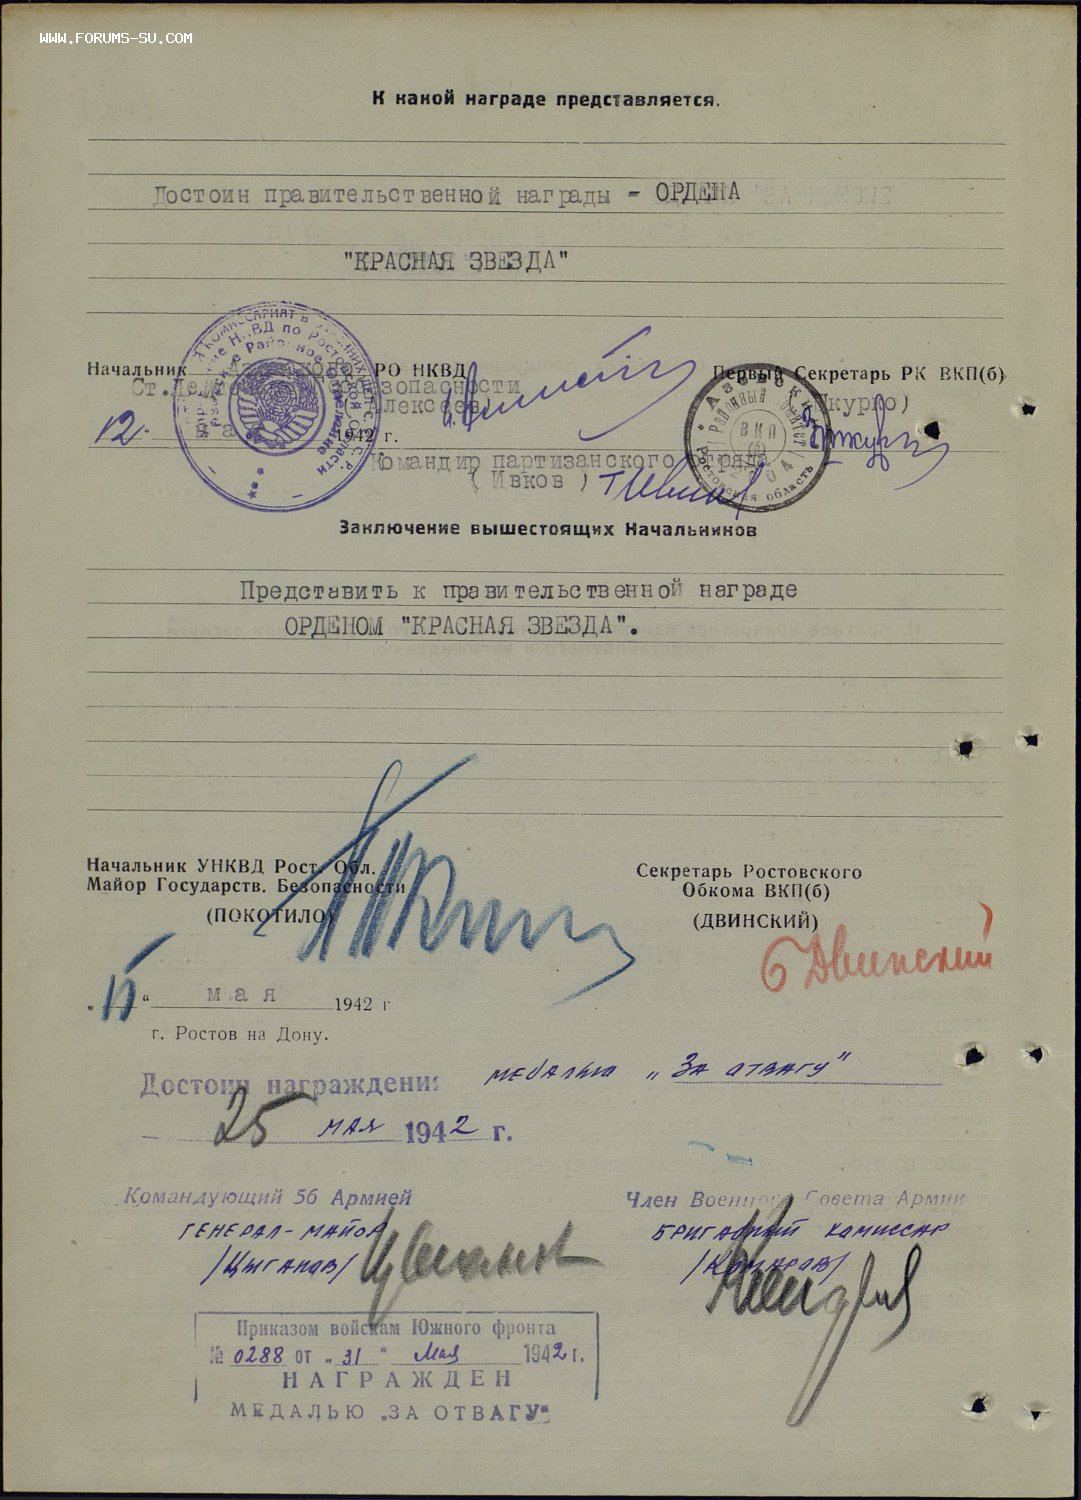 WWW.FORUMS-SU.COM
К какой награде представляется.
Достоин правительственной награды - ОРДЕНА
"КРАСНАЯ ЗВЕЗДА"
Начальник РО НКВД
Первый Секретарь РК ВКП(б)
Ст. безопасности
(Алексеев)
12. 1942 г.
ВКП
(б)
Ростовская область
Командир партизанского
( Ивков )
Заключение вышестоящих Начальников
Представить к правительственной награде
ОРДЕНОМ "КРАСНАЯ ЗВЕЗДА".
Начальник УНКВД Рост. Обл.
Майор Государств. Безопасности
(ПОКОТИЛО)
Секретарь Ростовского
Обкома ВКП(б)
(ДВИНСКИЙ)
Б Двинский
" " мая 1942 г
г. Ростов на Дону.
Достоин награждения медалью „За отвагу"
25 мая 1942 г.
Командующий 56 Армией
ГЕНЕРАЛ-МАЙОР
/Цыганов/
Член Военного Совета Армии
БРИГАДНЫЙ КОМИССАР
/Комаров/
Приказом войскам Южного фронта
№ 0288 от „31" Мая 1942 г.
НАГРАЖДЕН
МЕДАЛЬЮ „ЗА ОТВАГУ"